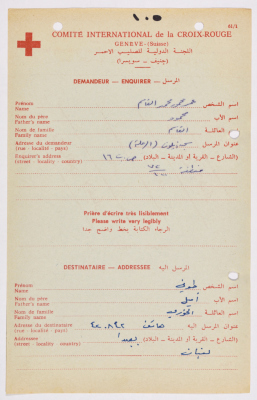 ١٠٠
61/1
COMITÉ INTERNATIONAL de la CROIX-ROUGE
GENEVE - (Suisse)
اللجنة الدولية للصليب الاحمر
(جنيف - سويسرا)
DEMANDEUR - ENQUIRER - المرسل
Prénom
Name
اسم الشخص
Nom du père
Father's name
اسم الأب محمود
Nom de famille
Family name
اسم العائلة
Adresse du demandeur
(rue : localité : pays)
عنوان المرسل
Enquirer's address
(street locality country)
(الشارع - القرية او المدينة - البلاد) ص.ب ١٦
Prière d'écrire très lisiblement
Please write very legibly
الرجاء الكتابة بخط واضح جدا
DESTINATAIRE - ADDRESSEE - المرسل اليه
Prénom
Name
اسم الشخص طوني
Nom du père
Father's name
اسم الأب اميل
Nom de famille
Family name
اسم العائلة
Adresse du destinataire
(rue : localité : pays)
عنوان المرسل اليه هاتف ٤٢٠٨٩٢
Addressee
(street locality country)
(الشارع - القرية او المدينة - البلاد) بعبدا
لبنان